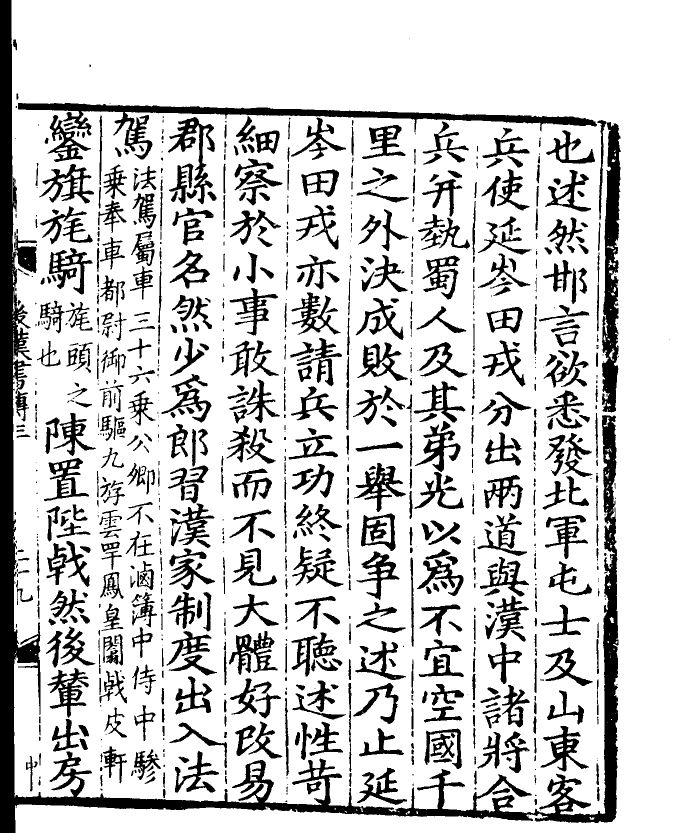 也述然邯言欲悉發北軍屯士及山東客
兵使延岑田戎分出兩道與漢中諸將合
兵并埶蜀人及其弟光以爲不宜空國千
里之外決成敗於一舉固爭之述乃止延
岑田戎亦數請兵立功終疑不聽述性苛
細察於小事敢誅殺而不見大體好改易
郡縣官名然少爲郎習漢家制度出入法
駕法駕屬車三十六乘公卿不在鹵簿中侍中驂
乘奉車都尉御前驅九游雲䍐鳳皇闟戟皮軒
鑾旗旄騎旄頭之
騎也陳置陛戟然後輦出房
後漢書傳三
二十九
中